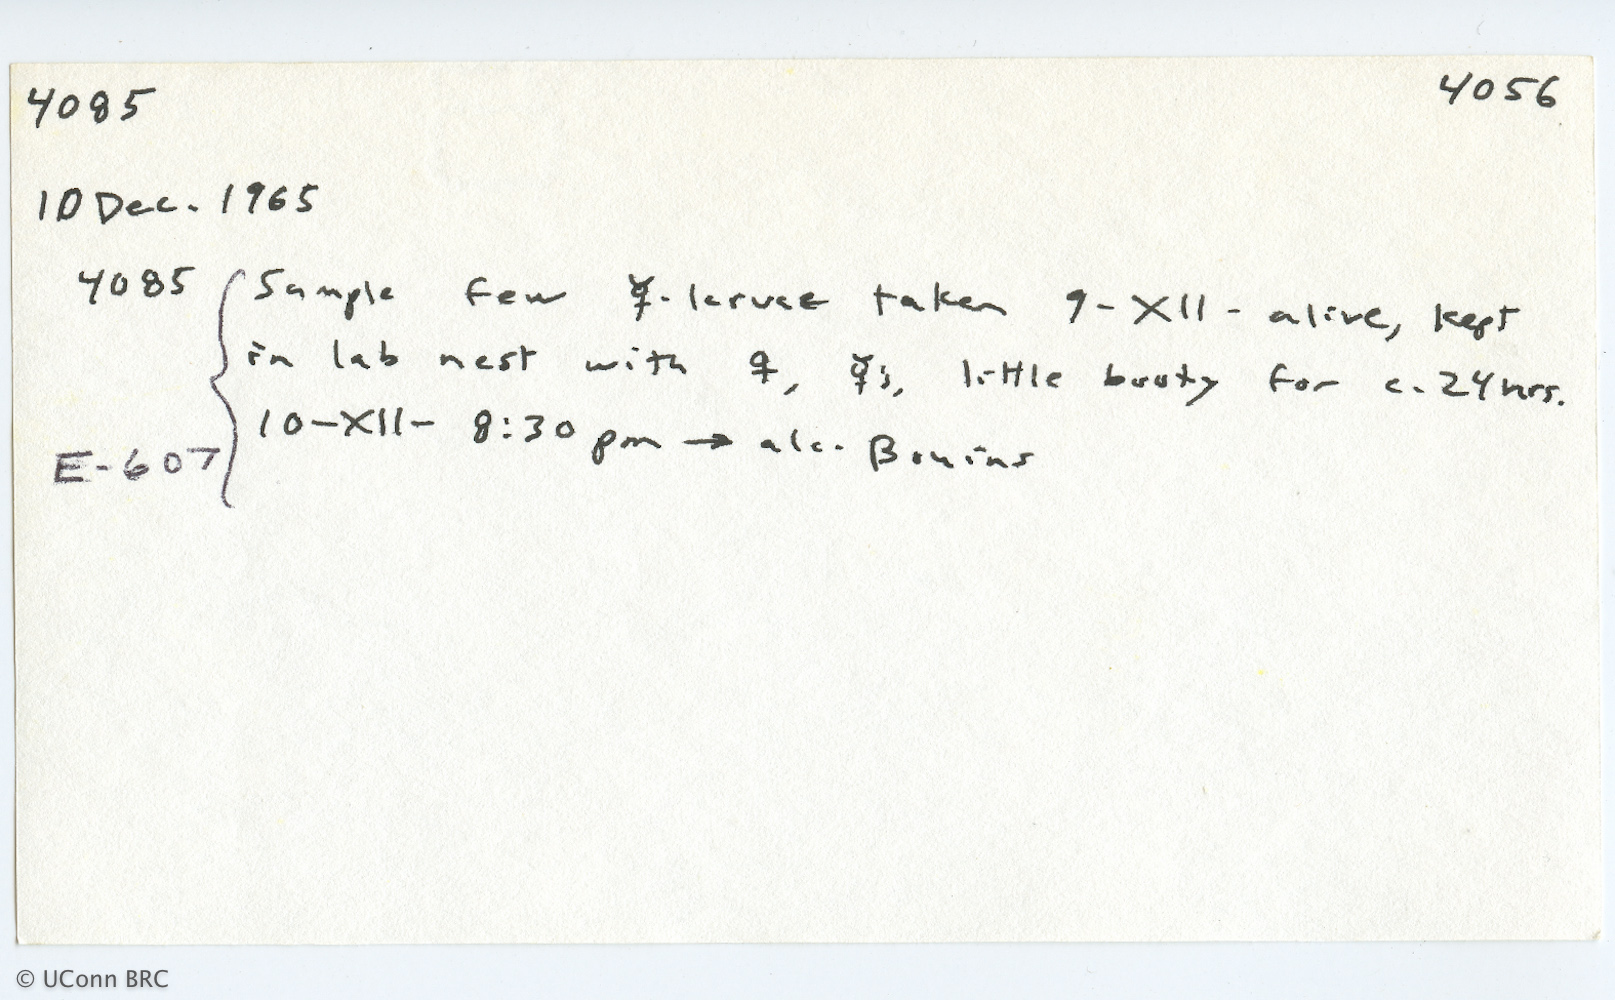 4085 4056
10 Dec. 1965
4085 { Sample few ☿-larvae taken 9-XII- alive, kept
in lab nest with ♀, ☿s, little booty for c. 24 hrs.
E-607 10-XII- 8:30 pm → alc. Bouins
© UConn BRC